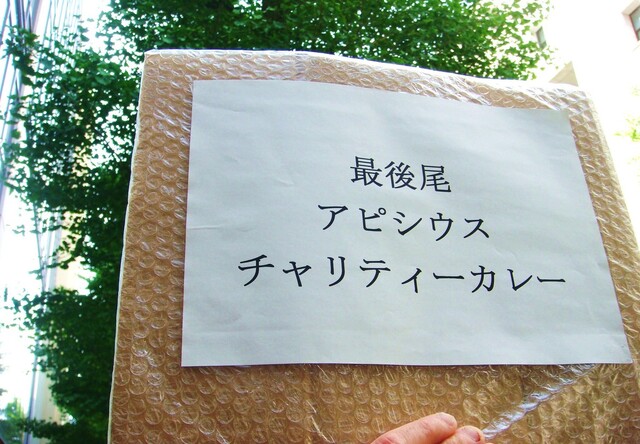 最後尾
アピシウス
チャリティーカレー